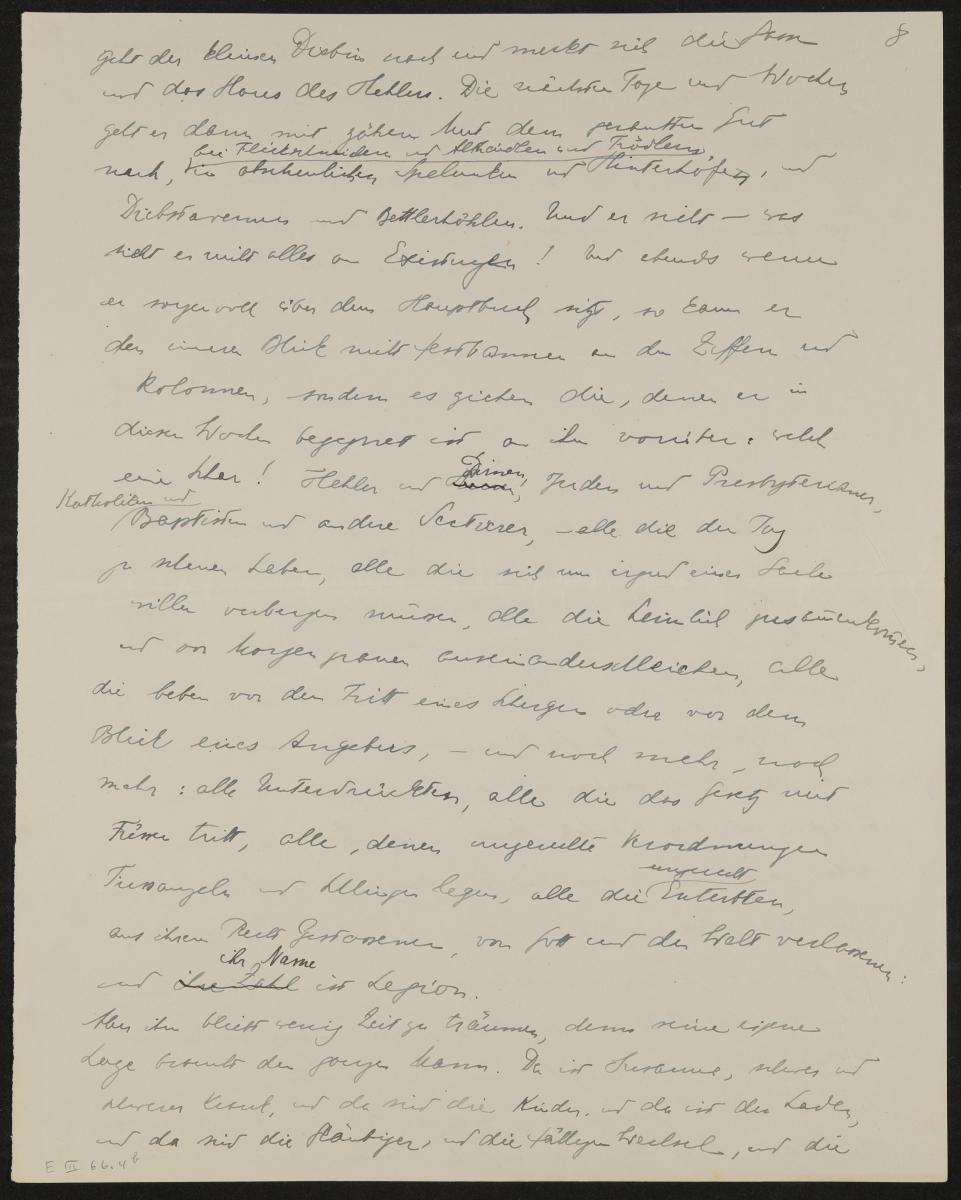 8
geht der kleinen Diebin nach und merkt sich die
und das Haus des Hehlers. Die nächsten Tage und Wochen
geht er dann mit zähem Mut dem gestohlenen Gut
bei Flickschneidern und Althändlern und Trödlern,
nach, in abscheulichen Spelunken und Hinterhöfen, und
Diebstavernen und Bettlerhöhlen. Und er sieht – was
sieht er nicht alles an Existenzen! Und abends wenn
er sorgenvoll über dem Hauptbuch sitzt, so kann er
den inneren Blick nicht festbannen an die Ziffern und
Kolonnen, sondern es ziehen die, denen er in
diesen Wochen begegnet ist an ihm vorüber: welch
eine Schar! Hehler und Dirnen, Juden und Presbyterianer,
Katholiken und
Baptisten und andere Sectierer, – alle die den Tag
zu scheuen haben, alle die sich um irgend einer Sache
willen verbergen müssen, alle die heimlich zusammenkommen,
und vor Morgengrauen auseinanderschleichen, alle
die beben vor dem Tritt eines Schergen oder vor dem
Blick eines Angebers, – und noch mehr, noch
mehr: alle Unterdrückten, alle die das Gesetz mit
Füssen tritt, alle, denen ungerechte Verordnungen
Fussangeln und Schlingen legen, alle die ungerecht Enterbten,
aus ihrem Recht Gestossenen, von Gott und der Welt verlassenen:
ihr Name
und ihre Zahl ist Legion.
Aber ihm bleibt wenig Zeit zu träumen, denn seine eigene
Lage braucht den ganzen Mann. Da ist Susanna, schwer und
schwerer krank, und da sind die Kinder, und da ist der Laden,
und da sind die Gläubiger, und die fälligen Wechsel, und die
E III 66.4b